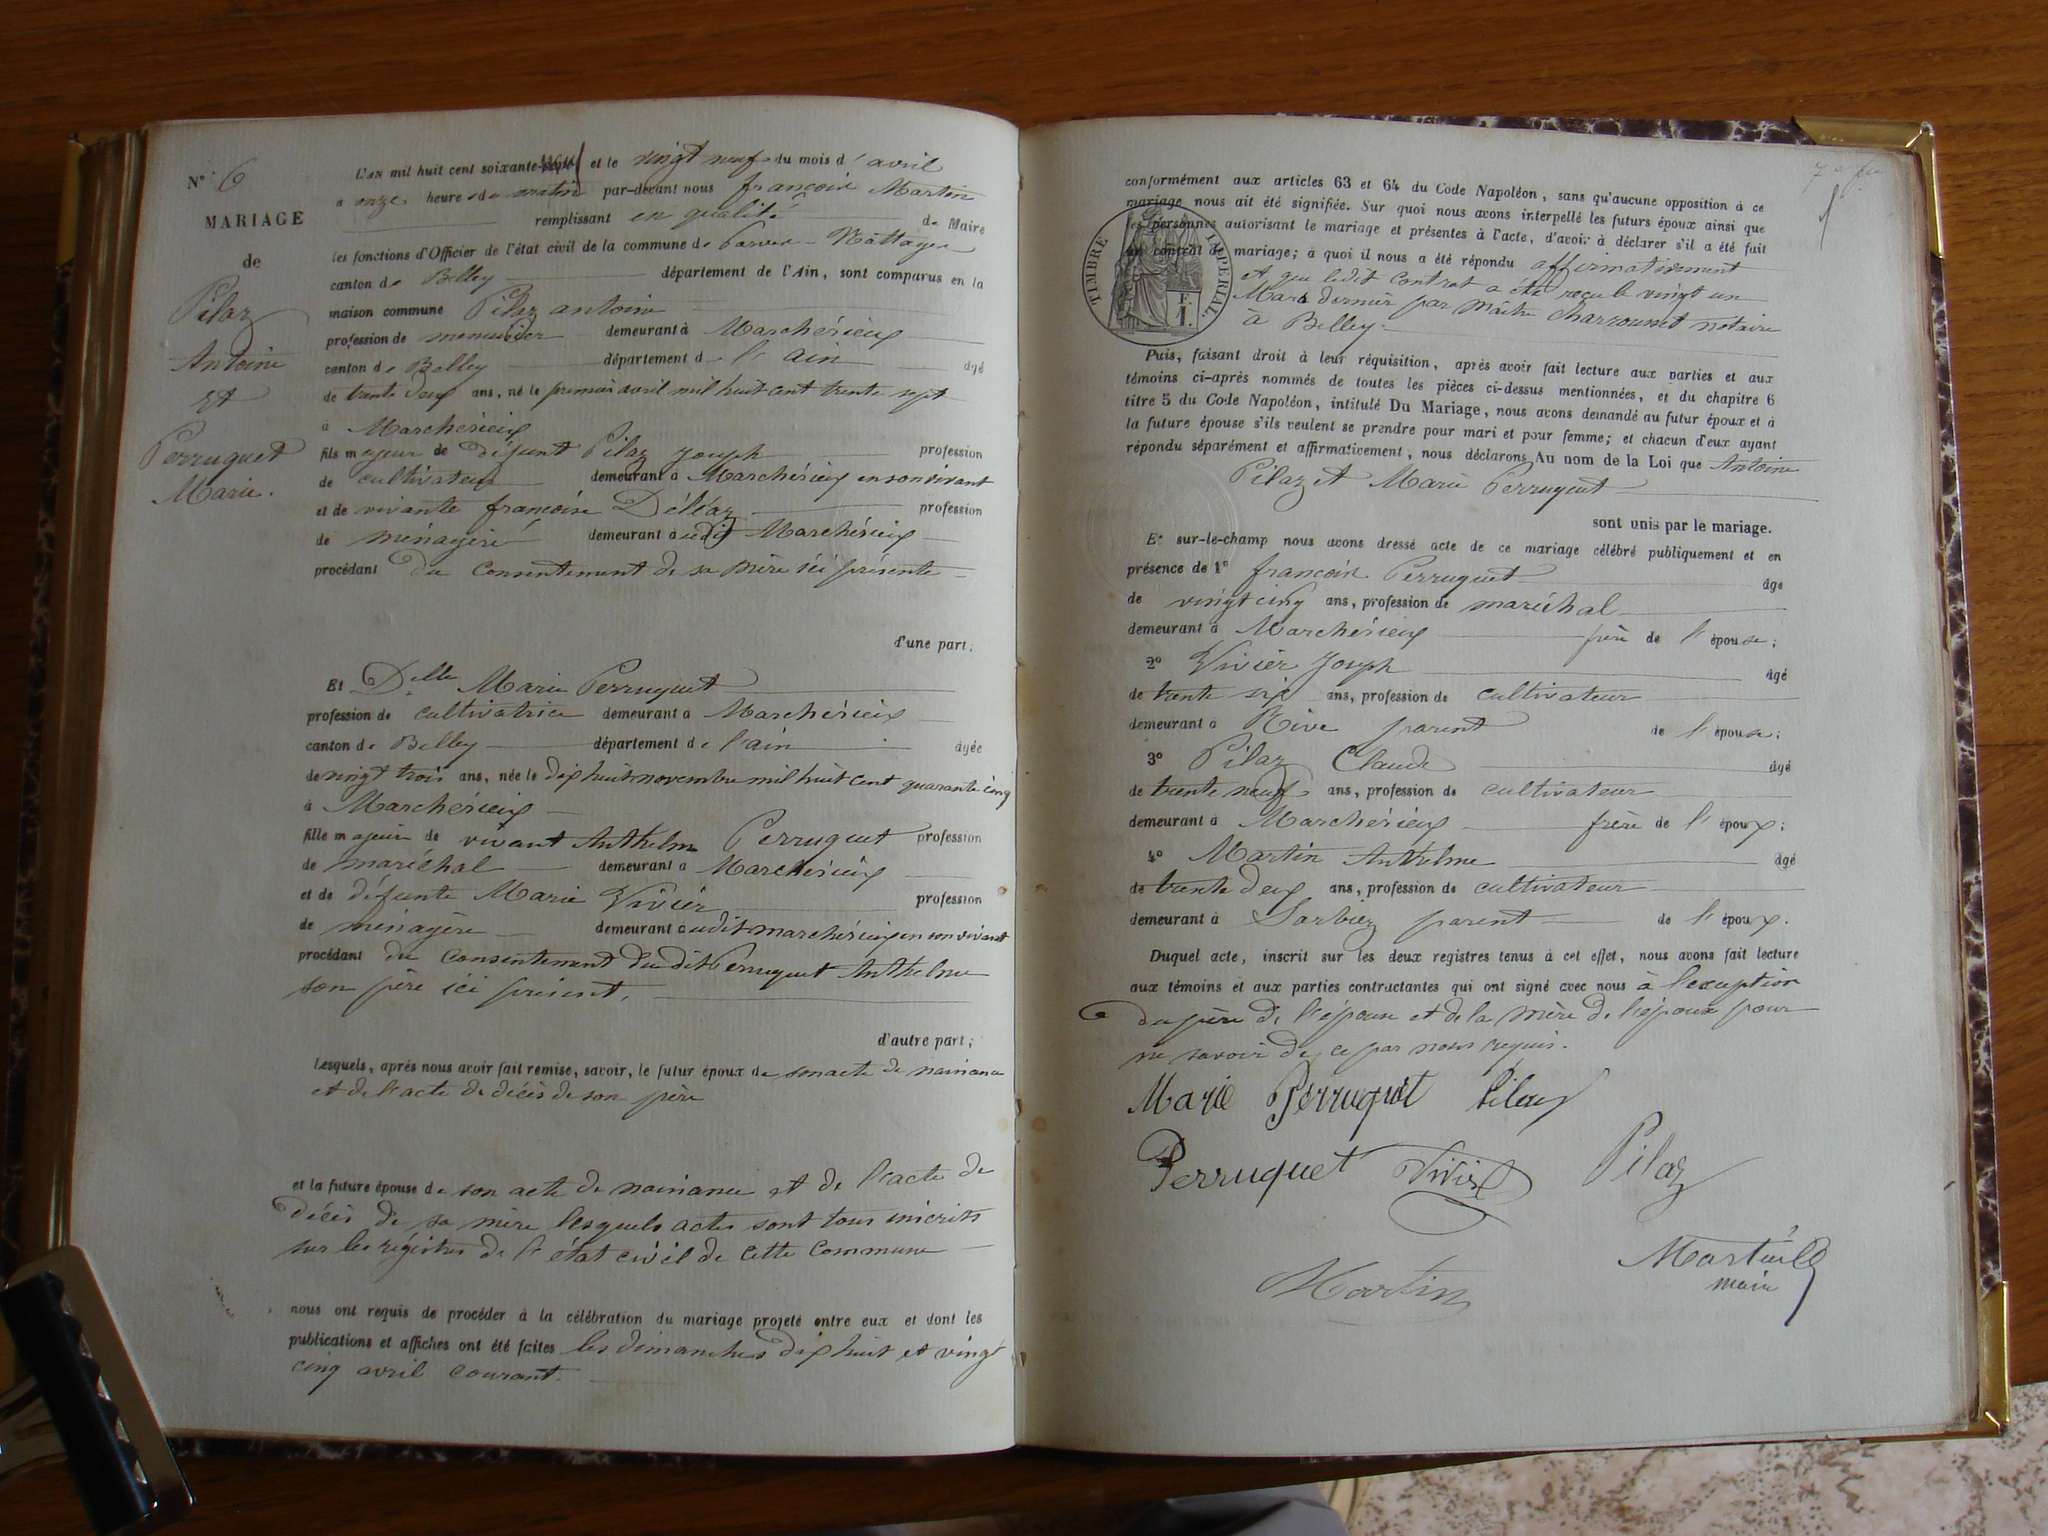 N° 6
MARIAGE
de
Pilaz
Antoine
et
Perruquet
Marie.
L'AN mil huit cent soixante-neuf et le vingt neuf du mois d'avril
a onze heures du matin par-devant nous françois Martin
remplissant en qualité de Maire
les fonctions d'Officier de l'état civil de la commune de Parves - Nattages
canton de Belley département de l'Ain, sont comparus en la
maison commune Pilaz antoine
profession de menuisier demeurant à Marchérieux
canton de Belley département de l'ain âgé
de trente deux ans, né le premier avril mil huit cent trente sept
à Marchérieux
fils majeur de défunt Pilaz joseph profession
de cultivateur demeurant à Marchérieux en son vivant
et de vivante françoise Déléaz profession
de ménagère demeurant audit Marchérieux
procédant du consentement de sa mère ici présente
d'une part;
Et Delle Marie Perruquet
profession de cultivatrice demeurant à Marchérieux
canton de Belley département de l'ain âgée
de vingt trois ans, née le dix huit novembre mil huit cent quarante cinq
à Marchérieux
fille majeure de vivant Anthelme Perruquet profession
de maréchal demeurant à Marchérieux
et de défunte Marie Vivier profession
de ménagère demeurant audit marchérieux en son vivant
procédant du consentement dudit Perruquet Anthelme
son père ici présent,
d'autre part;
Lesquels, après nous avoir fait remise, savoir, le futur époux de son acte de naissance
et de l'acte de décès de son père
et la future épouse de son acte de naissance et de l'acte de
décès de sa mère lesquels actes sont tous inscrits
sur les régistres de l'état civil de cette commune
nous ont requis de procéder à la célébration du mariage projeté entre eux et dont les
publications et affiches ont été faites les dimanches dix huit et vingt
cinq avril courant.
conformément aux articles 63 et 64 du Code Napoléon, sans qu'aucune opposition à ce
mariage nous ait été signifiée. Sur quoi nous avons interpellé les futurs époux ainsi que
les personnes autorisant le mariage et présentes à l'acte, d'avoir à déclarer s'il a été fait
un contrat de mariage; à quoi il nous a été répondu affirmativement
et que ledit contrat a été reçu le vingt un
Mars dernier par Maître notaire
à Belley.
TIMBRE IMPERIAL
F.
1.
Puis, faisant droit à leur réquisition, après avoir fait lecture aux parties et aux
témoins ci-après nommés de toutes les pièces ci-dessus mentionnées, et du chapitre 6
titre 5 du Code Napoléon, intitulé Du Mariage, nous avons demandé au futur époux et à
la future épouse s'ils veulent se prendre pour mari et pour femme; et chacun d'eux ayant
répondu séparément et affirmativement, nous déclarons Au nom de la Loi que Antoine
Pilaz et Marie Perruquet
sont unis par le mariage.
Et sur-le-champ nous avons dressé acte de ce mariage célébré publiquement et en
présence de 1° françois Perruquet âgé
de vingt cinq ans, profession de maréchal
demeurant à Marchérieux frère de l'épouse;
2° Vivier Joseph âgé
de trente six ans, profession de cultivateur
demeurant à Rive parent de l'épouse;
3° Pilaz Claude âgé
de trente neuf ans, profession de cultivateur
demeurant à Marchérieux frère de l'époux;
4° Martin Anthelme âgé
de trente deux ans, profession de cultivateur
demeurant à Sorbiez parent de l'époux.
Duquel acte, inscrit sur les deux registres tenus à cet effet, nous avons fait lecture
aux témoins et aux parties contractantes qui ont signé avec nous à l'exception
du père de l'épouse et de la mère de l'époux pour
ne savoir de ce par nous requis.
Marie Perruquet Pilaz
Perruquet Vivier Pilaz
Martin
Martin
maire